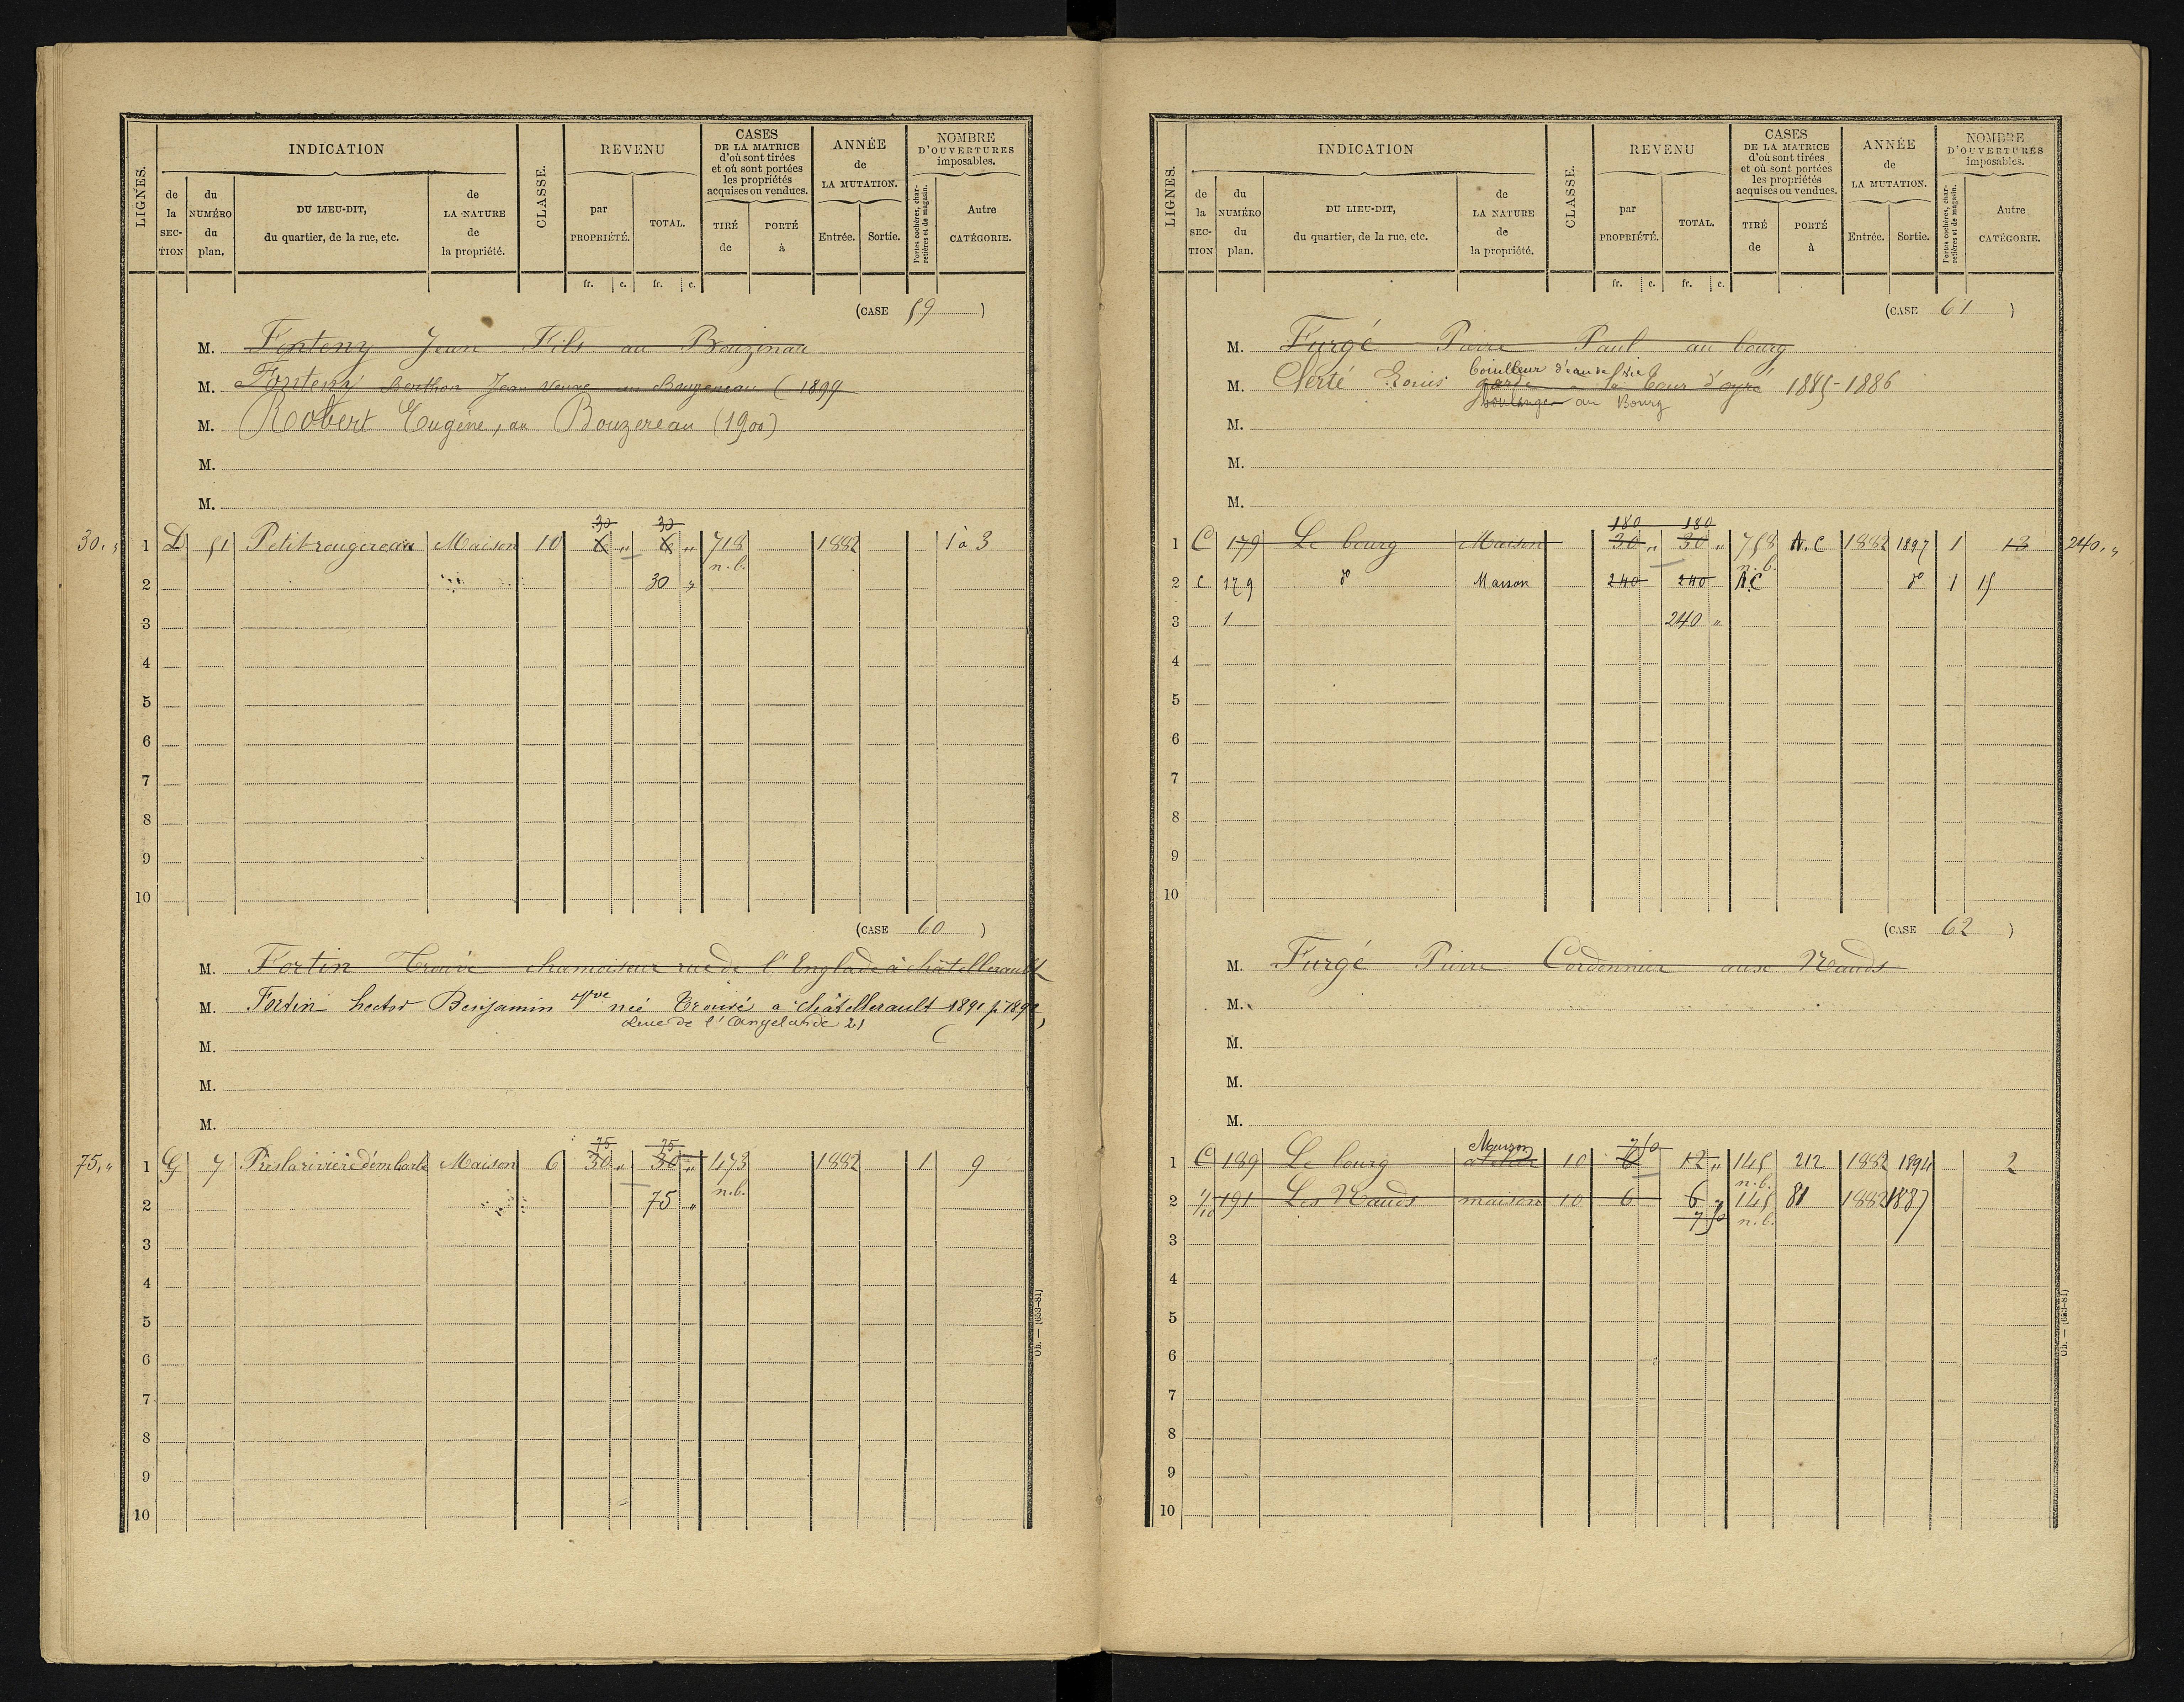 LIGNES.
INDICATION
CLASSE.
REVENU
CASES
DE LA MATRICE
d'où sont tirées
et où sont portées
les propriétés
acquises ou vendues.
ANNÉE
de
LA MUTATION.
NOMBRE
D'OUVERTURES
imposables.
de la SECTION
du NUMÉRO du plan.
DU LIEU-DIT,
du quartier, de la rue, etc.
de LA NATURE de la propriété.
par PROPRIÉTÉ.
TOTAL.
TIRÉ de
PORTÉ à
Entrée.
Sortie.
Portes cochères, charretières et de magasin.
Autre CATÉGORIE.
fr. c. fr. c.
(CASE 59)
M. Fonteny Jean Fils au Bouzinau
M. Fonteny Berthon Jean veuve au Bouzereau (1899
M. Robert Eugène, au Bouzereau (1900)
M.
M.
30 30
30. " 1 D 51 Petit rougereau Maison 10 6 " 6 " 718 1882 1 à 3
n.b.
2 30 "
3
4
5
6
7
8
9
10
(CASE 60)
M. Fortin Trouvé chamoiseur rue de l'Englade à châtellerault
M. Fortin hector Benjamin Vve née Trouvé a châtellerault 1891 p 1892
Rue de l'Angelarde 21
M.
M.
M.
75 75
75. " 1 G 7 Maison 6 30 " 30 " 473 1882 1 9
n.b.
2 75 "
3
4
5
6
7
8
9
10
Ob. — (653-81)
LIGNES.
INDICATION
CLASSE.
REVENU
CASES
DE LA MATRICE
d'où sont tirées
et où sont portées
les propriétés
acquises ou vendues.
ANNÉE
de
LA MUTATION.
NOMBRE
D'OUVERTURES
imposables.
de la SECTION
du NUMÉRO du plan.
DU LIEU-DIT,
du quartier, de la rue, etc.
de LA NATURE de la propriété.
par PROPRIÉTÉ.
TOTAL.
TIRÉ de
PORTÉ à
Entrée.
Sortie.
Portes cochères, charretières et de magasin.
Autre CATÉGORIE.
fr. c. fr. c.
(CASE 61)
M. Furgé Pierre Paul au bourg
bouilleur d'eau de vie
M. Nerté Louis garde à la Cour d'oyré 1885-1886
boulanger au Bourg
M.
M.
M.
180 180
1 C 179 Le bourg Maison 30 " 30 " 758 N.C 1882 1897 1 13 240. "
n.b.
2 C 179 do Maison 240 240 N.C do 1 15
3 1 240 "
4
5
6
7
8
9
10
(CASE 62)
M. Furgé Pierre Cordonnier aux Nauds
M.
M.
M.
M.
Maison 7 50
1 C 189 Le bourg atelier 10 6 12 " 145 212 1882 1894 2
n.b.
2 1/10 191 Les Nauds maison 10 6 6 " 145 81 1882 1887
7 50 n.b.
3
4
5
6
7
8
9
10
Ob. — (653-81)